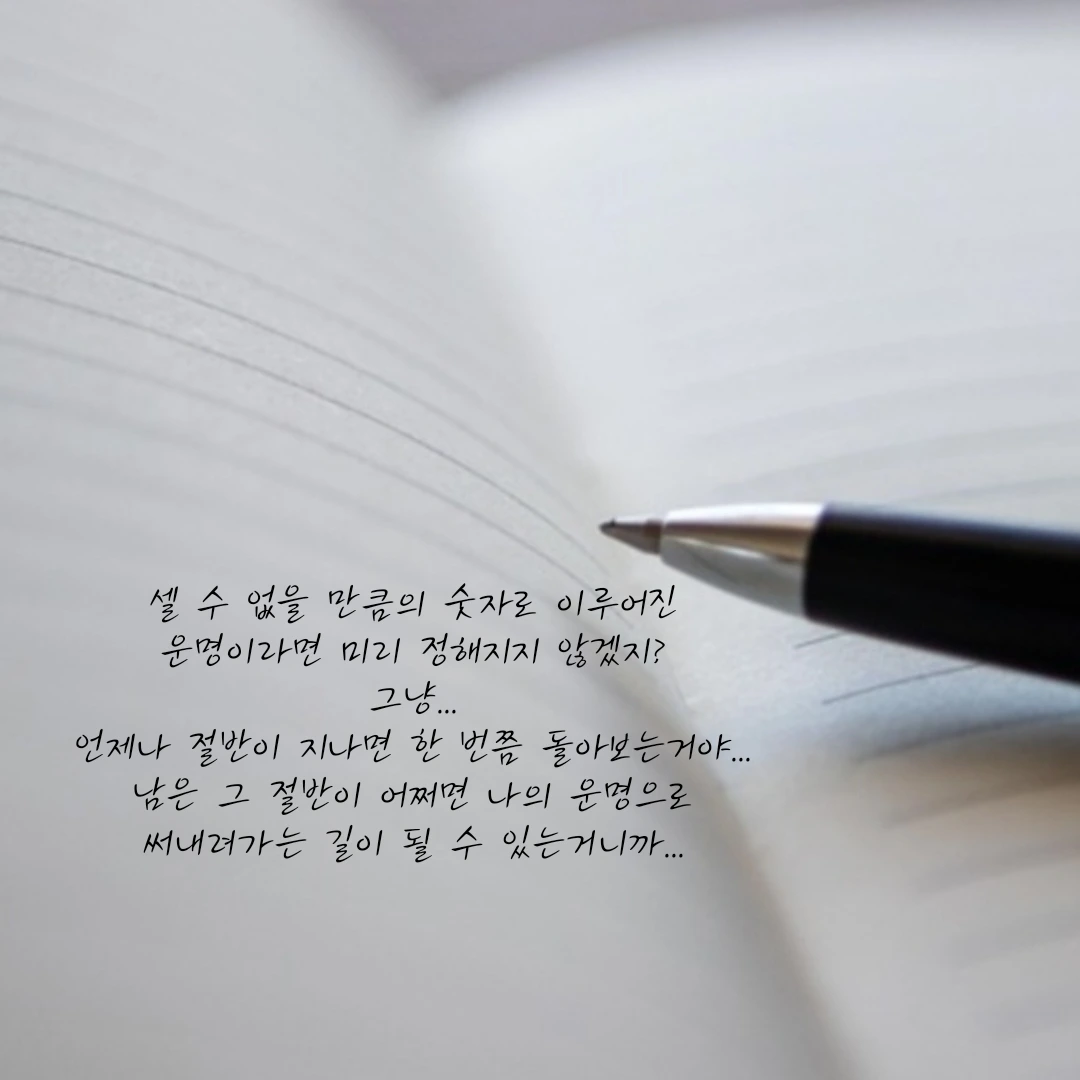 셀 수 없을 만큼의 숫자로 이루어진
운명이라면 미리 정해지지 않겠지?
그냥...
언제나 절반이 지나면 한 번쯤 돌아보는거야...
남은 그 절반이 어쩌면 나의 운명으로
써내려가는 길이 될 수 있는거니까...